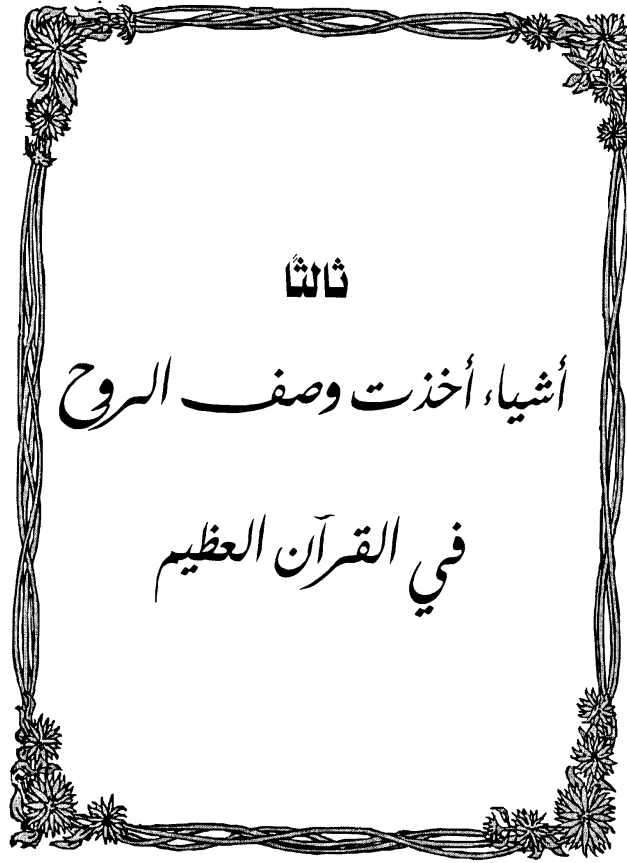 ثالثًا
أشياء أخذت وصف الروح
في القرآن العظيم